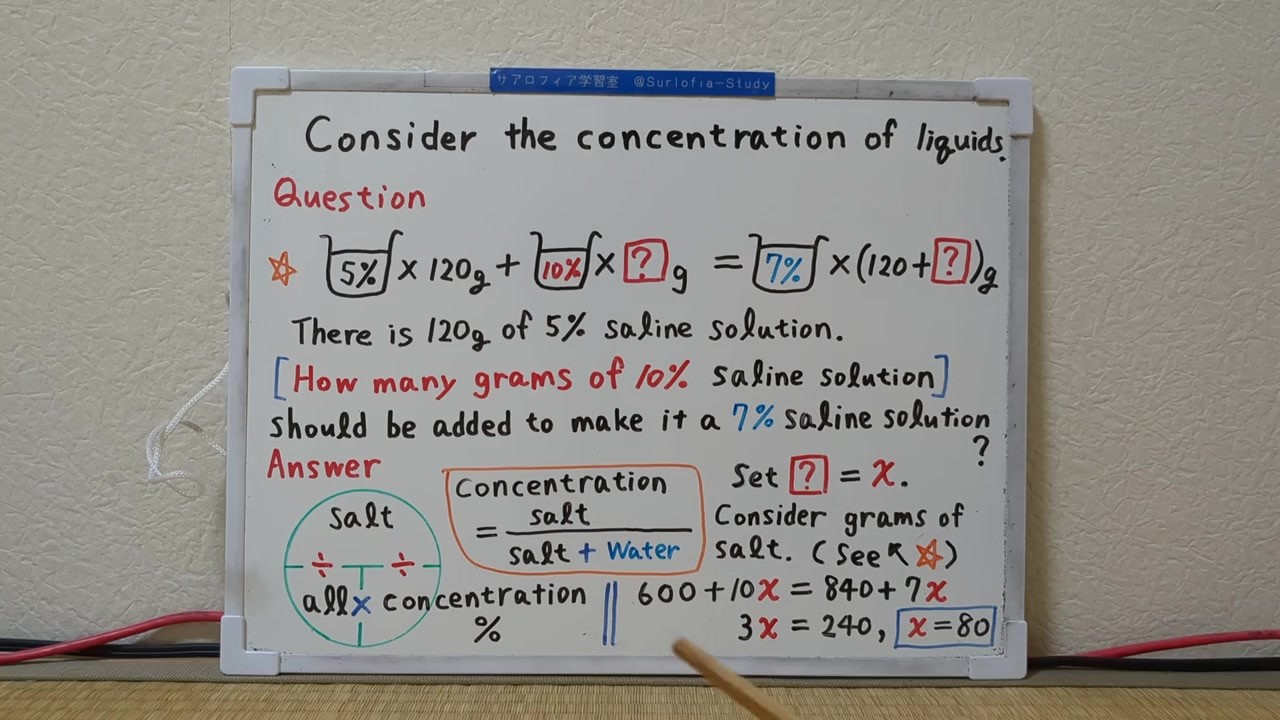 サアロフィア学習室 @Surlofia-Study
Consider the concentration of liquids.
Question
☆ 5% × 120g + 10% × ? g = 7% × (120+?)g
There is 120g of 5% saline solution.
[How many grams of 10% saline solution]
should be added to make it a 7% saline solution
?
Answer
salt
÷ ÷
all × concentration
%
Concentration
= salt / salt + Water
Set ? = x.
Consider grams of
salt. (See ↖ ☆)
600+10x = 840+7x
3x = 240, x=80